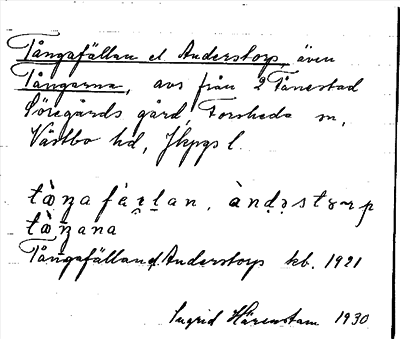 Tångafällan el. Anderstorps, även
Tångarna, avs från 2 Tånestad
Söregårds gård, Forsheda sn,
Västbo hd, Jkpgs l.
tàŋafɛ̀ḷan, àṇḍəstɤrp
tàŋana
Tångafällan el. Anderstorps kb. 1921
Ingrid Härenstam 1930